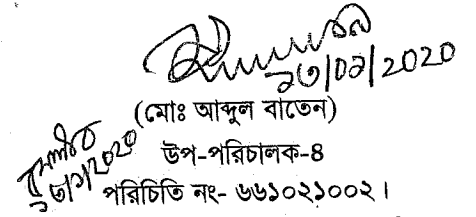 ২৩/০৯/2020
(মোঃ আব্দুল বাতেন)
উপ-পরিচালক-৪
পরিচিতি নং- ৬৬১০২১০০২।